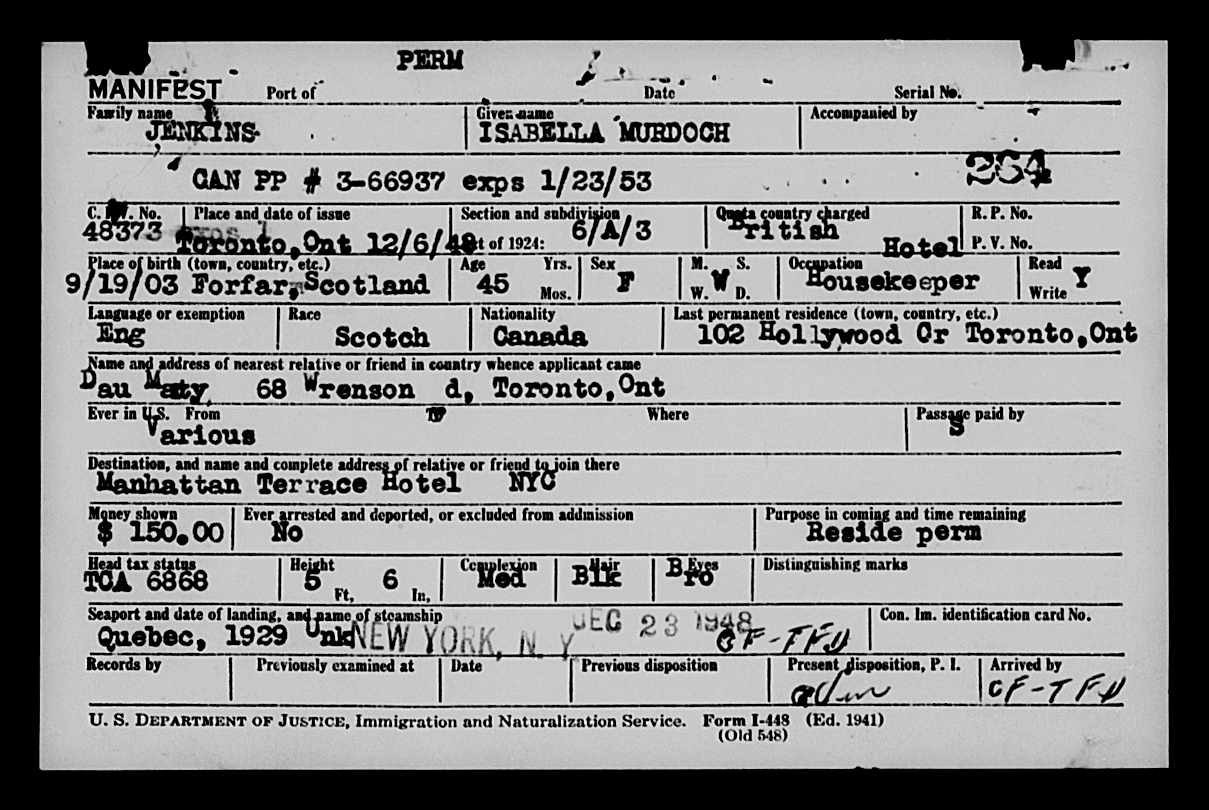 PERM
MANIFEST Port of Date Serial No.
Family name Given name Accompanied by
JENKINS ISABELLA MURDOCH
CAN PP # 3-66937 exps 1/23/53 264
C. I. V. No. Place and date of issue Section and subdivision Quota country charged R. P. No.
48373 Toronto,Ont 12/6/48 Act of 1924: 6/A/3 British Hotel P. V. No.
Place of birth (town, country, etc.) Age Yrs. Sex M. S. Occupation Read
9/19/03 Forfar,Scotland 45 Mos. F W W. D. Housekeeper Write Y
Language or exemption Race Nationality Last permanent residence (town, country, etc.)
Eng Scotch Canada 102 Hollywood Cr Toronto,Ont
Name and address of nearest relative or friend in country whence applicant came
Dau Maty, 68 Wrenson d, Toronto,Ont
Ever in U.S. From To Where Passage paid by
Various S
Destination, and name and complete address of relative or friend to join there
Manhattan Terrace Hotel NYC
Money shown Ever arrested and deported, or excluded from addmission Purpose in coming and time remaining
$ 150.00 No Reside perm
Head tax status Height Complexion Hair Eyes Distinguishing marks
TCA 6868 5 Ft, 6 In, Med Blk Bro
Seaport and date of landing, and name of steamship Con. Im. identification card No.
Quebec, 1929 Unk NEW YORK, N. Y. DEC 23 1948 CF-TFD
Records by Previously examined at Date Previous disposition Present disposition, P. I. Arrived by
CF-TFD
U. S. DEPARTMENT OF JUSTICE, Immigration and Naturalization Service. Form I-448 (Ed. 1941)
(Old 548)